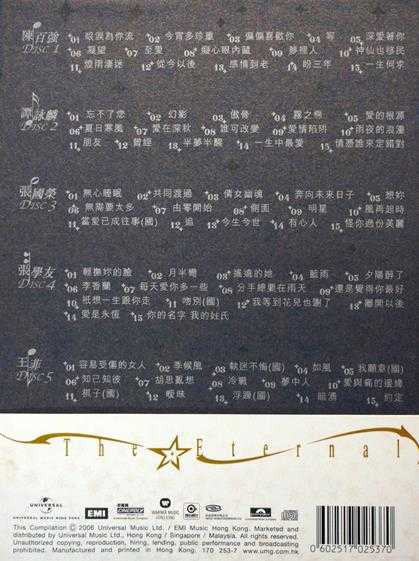 陳百強 DISC 1
01 眼淚為你流 02 今宵多珍重 03 偏偏喜歡你 04 等 05 深愛著你
06 凝望 07 至愛 08 癡心眼內藏 09 夢裡人 10 神仙也移民
11 煙雨淒迷 12 從今以後 13 感情到老 14 盼三年 15 一生何求
譚詠麟 DISC 2
01 忘不了您 02 幻影 03 傲骨 04 霧之戀 05 愛的根源
06 夏日寒風 07 愛在深秋 08 誰可改變 09 愛情陷阱 10 雨夜的浪漫
11 朋友 12 曾經 13 半夢半醒 14 一生中最愛 15 情憑誰來定錯對
張國榮 DISC 3
01 無心睡眠 02 共同渡過 03 倩女幽魂 04 奔向未來日子 05 想妳
06 無需要太多 07 由零開始 08 側面 09 明星 10 風再起時
11 當愛已成往事(國) 12 追 13 今生今世 14 有心人 15 怪你過份美麗
張學友 DISC 4
01 輕撫妳的臉 02 月半彎 03 遙遠的她 04 藍雨 05 夕陽醉了
06 李香蘭 07 每天愛你多一些 08 分手總要在雨天 09 還是覺得你最好
10 祇想一生跟你走 11 吻別(國) 12 我等到花兒也謝了 13 離開以後
14 愛是永恆 15 你的名字 我的姓氏
王菲 DISC 5
01 容易受傷的女人 02 季候風 03 執迷不悔(國) 04 如風 05 我願意(國)
06 知己知彼 07 胡思亂想 08 冷戰 09 夢中人 10 愛與痛的邊緣
11 棋子(國) 12 曖昧 13 浮躁(國) 14 暗湧 15 約定
The Eternal
UNIVERSAL
UNIVERSAL MUSIC HONG KONG
EMI
CINEPOLY
WARNER MUSIC
HONG KONG
This Compilation ℗ 2006 Universal Music Ltd. / EMI Music Hong Kong. Marketed and
distributed by Universal Music Ltd., Hong Kong / Singapore / Malaysia. All Rights Reserved.
Unauthorized copying, reproduction, hiring, lending, public performance and broadcasting
prohibited. Manufactured and printed in Hong Kong. 170 253-7 www.umg.com.hk
0 602517 025370